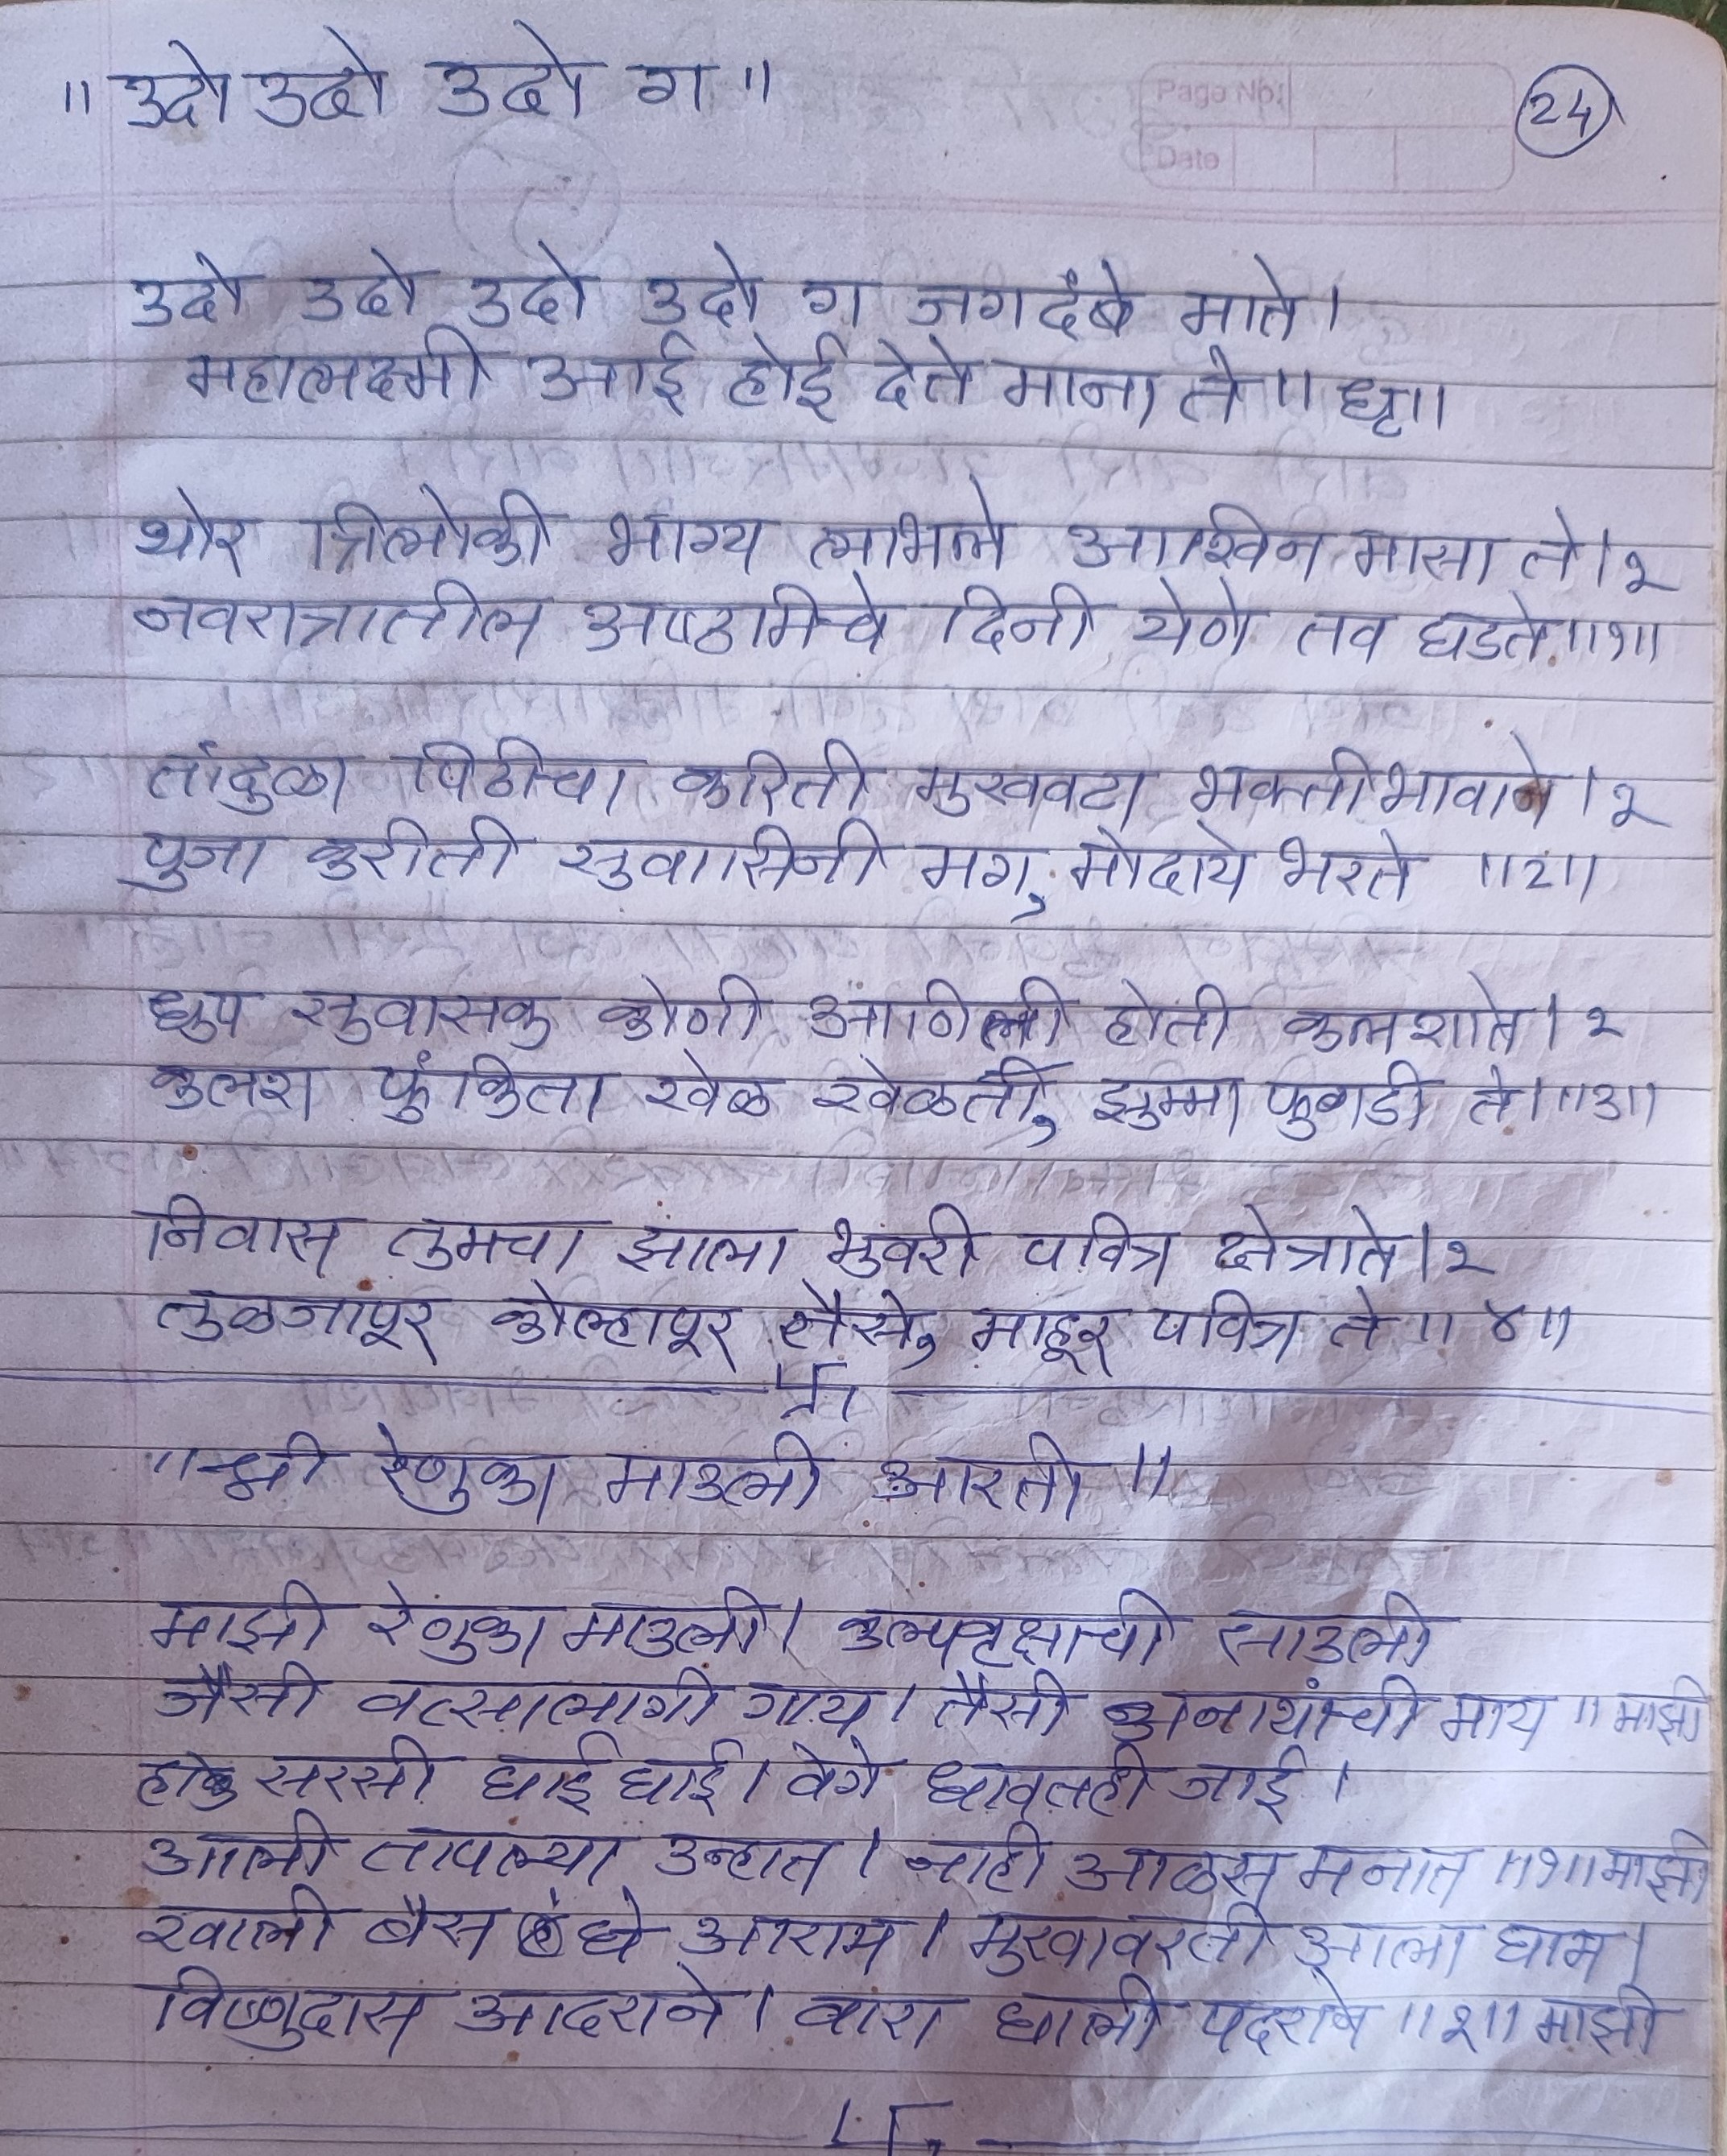 " उदो उदो उदो ग "
Page No:
24
Date
उदो उदो उदो उदो ग जगदंबे माते।
महालक्ष्मी आई होई देते माना ते ॥ धृ॥
थोर त्रिलोकी भाग्य लाभले आश्विन मासा ते। २
नवरात्रातील अष्ठमिचे दिनी येणे तव घडते ॥१॥
तांदुळा पिठीचा करिती मुखवटा भक्तीभावाने। २
पुजा करीती सुवासिनी मग, मोदाये भरते ॥2॥
धुप सुवासक कोणी आणिली होती कलशाते। २
कलश फुंकिता खेळ खेळती, झुम्मा फुगडी ते।॥3॥
निवास तुमचा झाला भुवरी पवित्र क्षेत्राते। २
तुळजापूर कोल्हापूर तैसे, माहूर पवित्र ते ॥ ४॥
"श्री रेणुका माउली आरती "
माझी रेणुका माउली। कल्पवृक्षाची साउली
जैसी वत्सालागी गाय। तैसी अनाथांची माय ॥ माझी
हाके सरसी घाई घाई। वेगे धावतही जाई।
आली तापल्या उन्हात। नाही आळस मनात ॥१॥ माझी
खाली बैस घे आराम। मुखावरती आला घाम।
विष्णुदास आदराने। वारा घाली पदराने ॥२॥ माझी